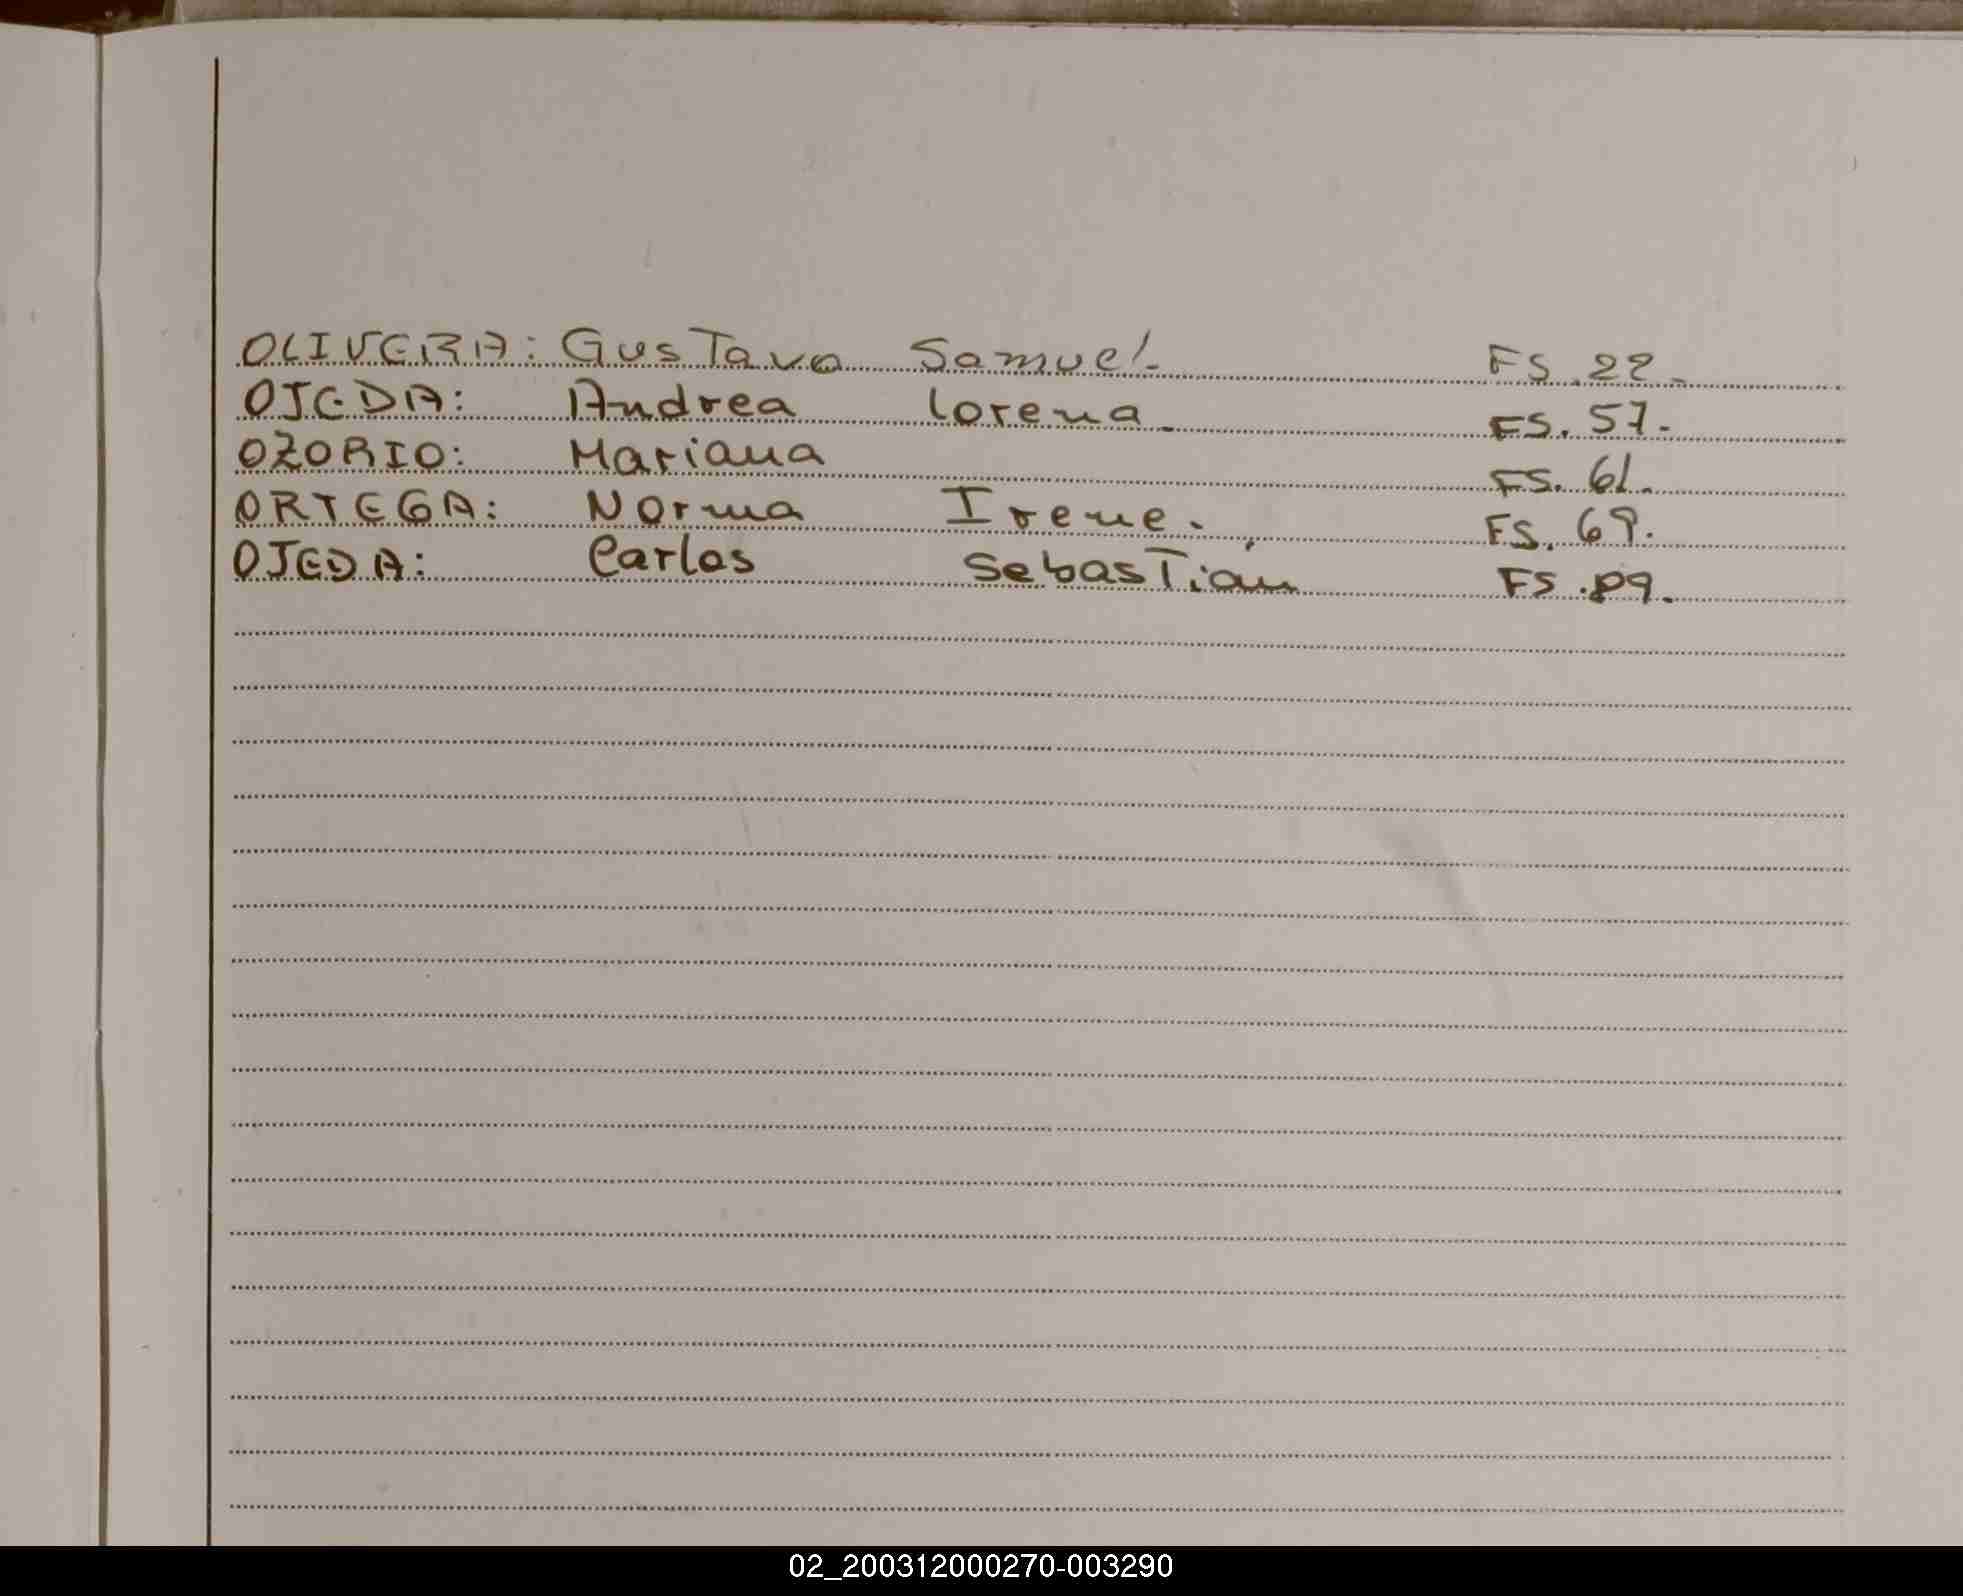 OLIVERA: Gustavo Samuel. FS. 22.
OJEDA: Andrea Lorena. FS. 57.
OZORIO: Mariana FS. 61.
ORTEGA: Norma Irene. FS. 69.
OJEDA: Carlos Sebastián FS. 89.
02_200312000270-003290